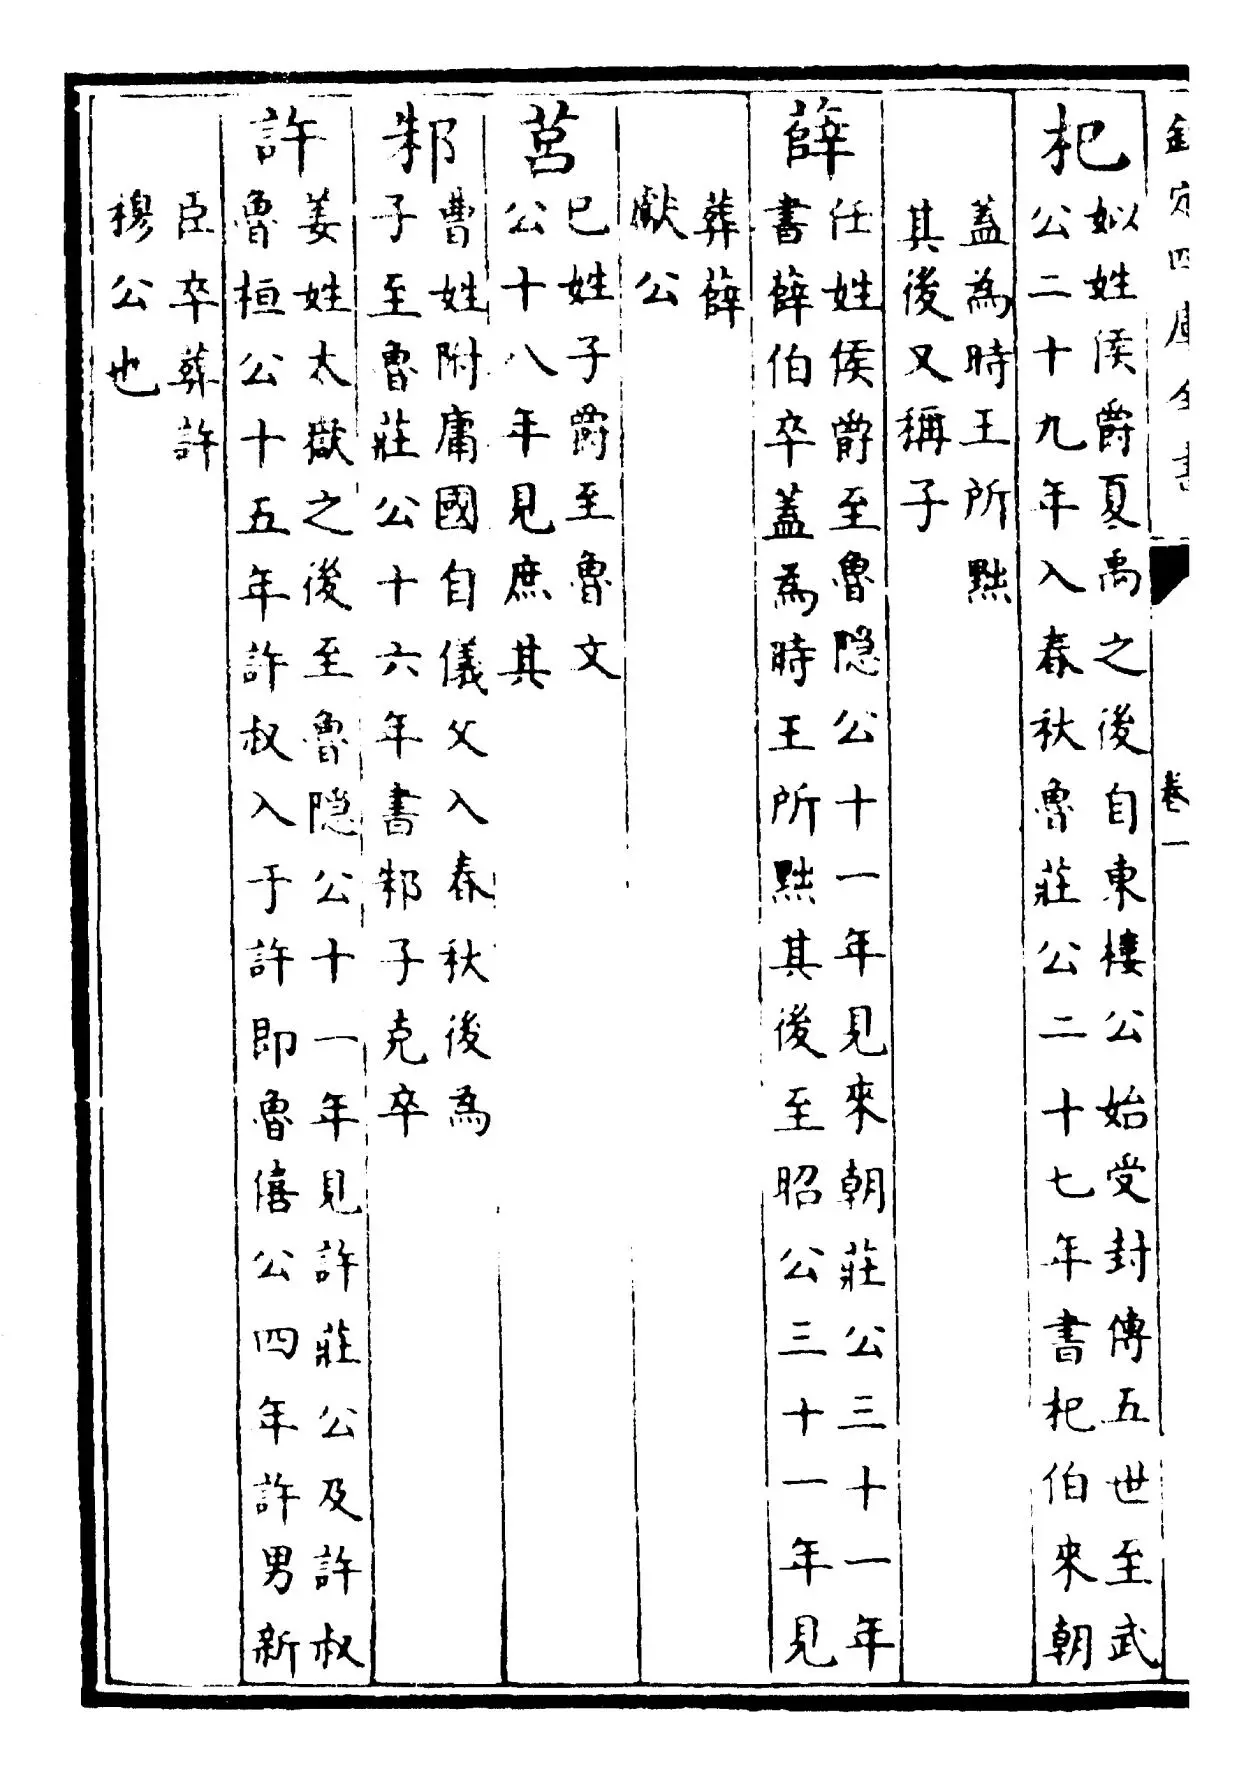 欽定四庫全書
卷一
杞
姒姓侯爵夏禹之後自東樓公始受封傳五世至武
公二十九年入春秋魯莊公二十七年書杞伯來朝
蓋為時王所黜
其後又稱子
薛
任姓侯爵至魯隱公十一年見來朝莊公三十一年
書薛伯卒蓋為時王所黜其後至昭公三十一年見
葬薛
獻公
莒
已姓子爵至魯文
公十八年見庶其
邾
曹姓附庸國自儀父入春秋後為
子至魯莊公十六年書邾子克卒
許
姜姓太嶽之後至魯隱公十一年見許莊公及許叔
魯桓公十五年許叔入于許即魯僖公四年許男新
臣卒葬許
穆公也